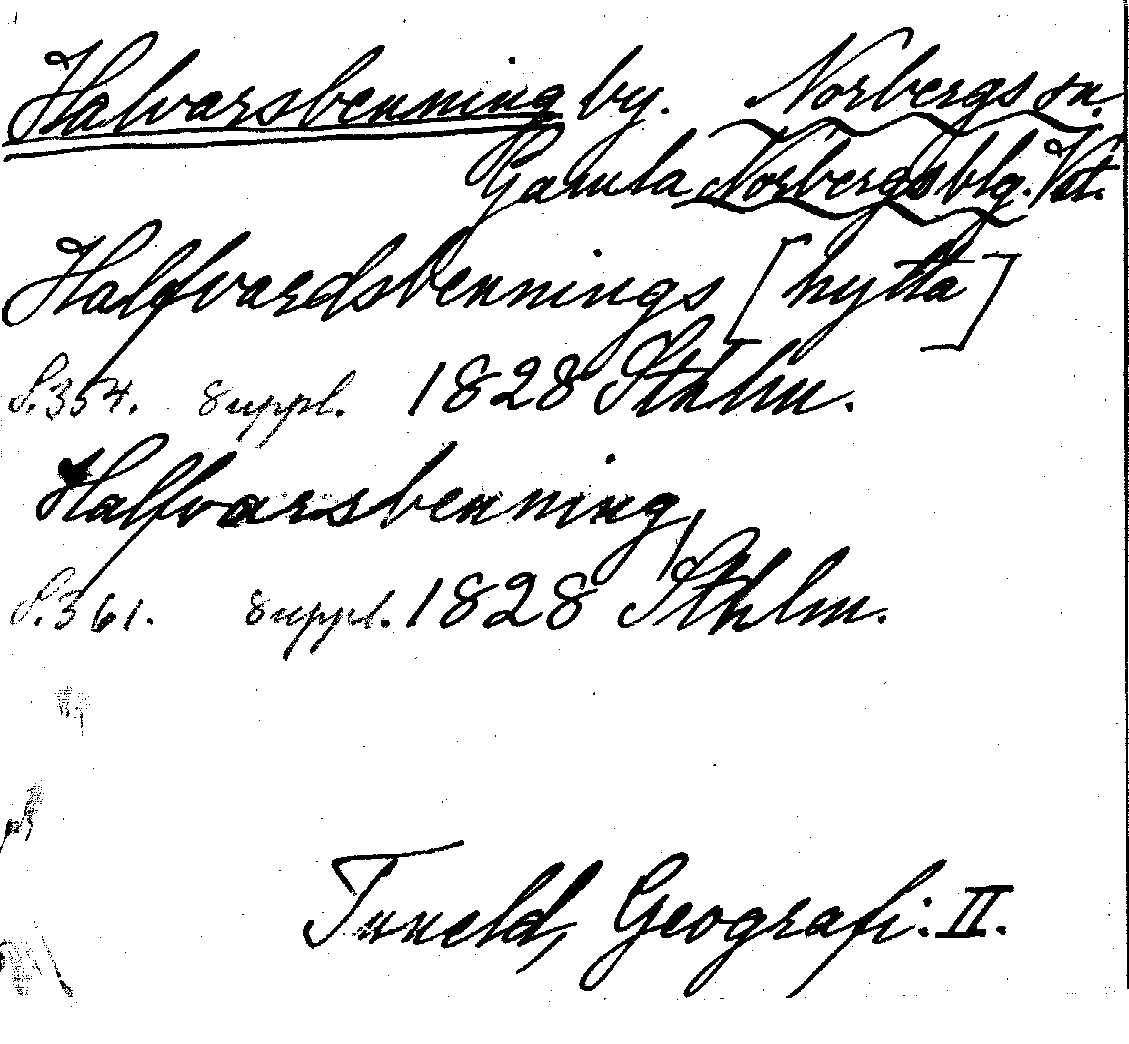 Halvarsbenning by. Norbergs sn.
Gamla Norbergsblg. Vst.
Halfvardsbennings [hytta]
S.354. Suppl. 1828 Sthlm.
Halfvarsbenning,
S.361. Suppl. 1828 Sthlm.
Tuneld, Geografi. II.